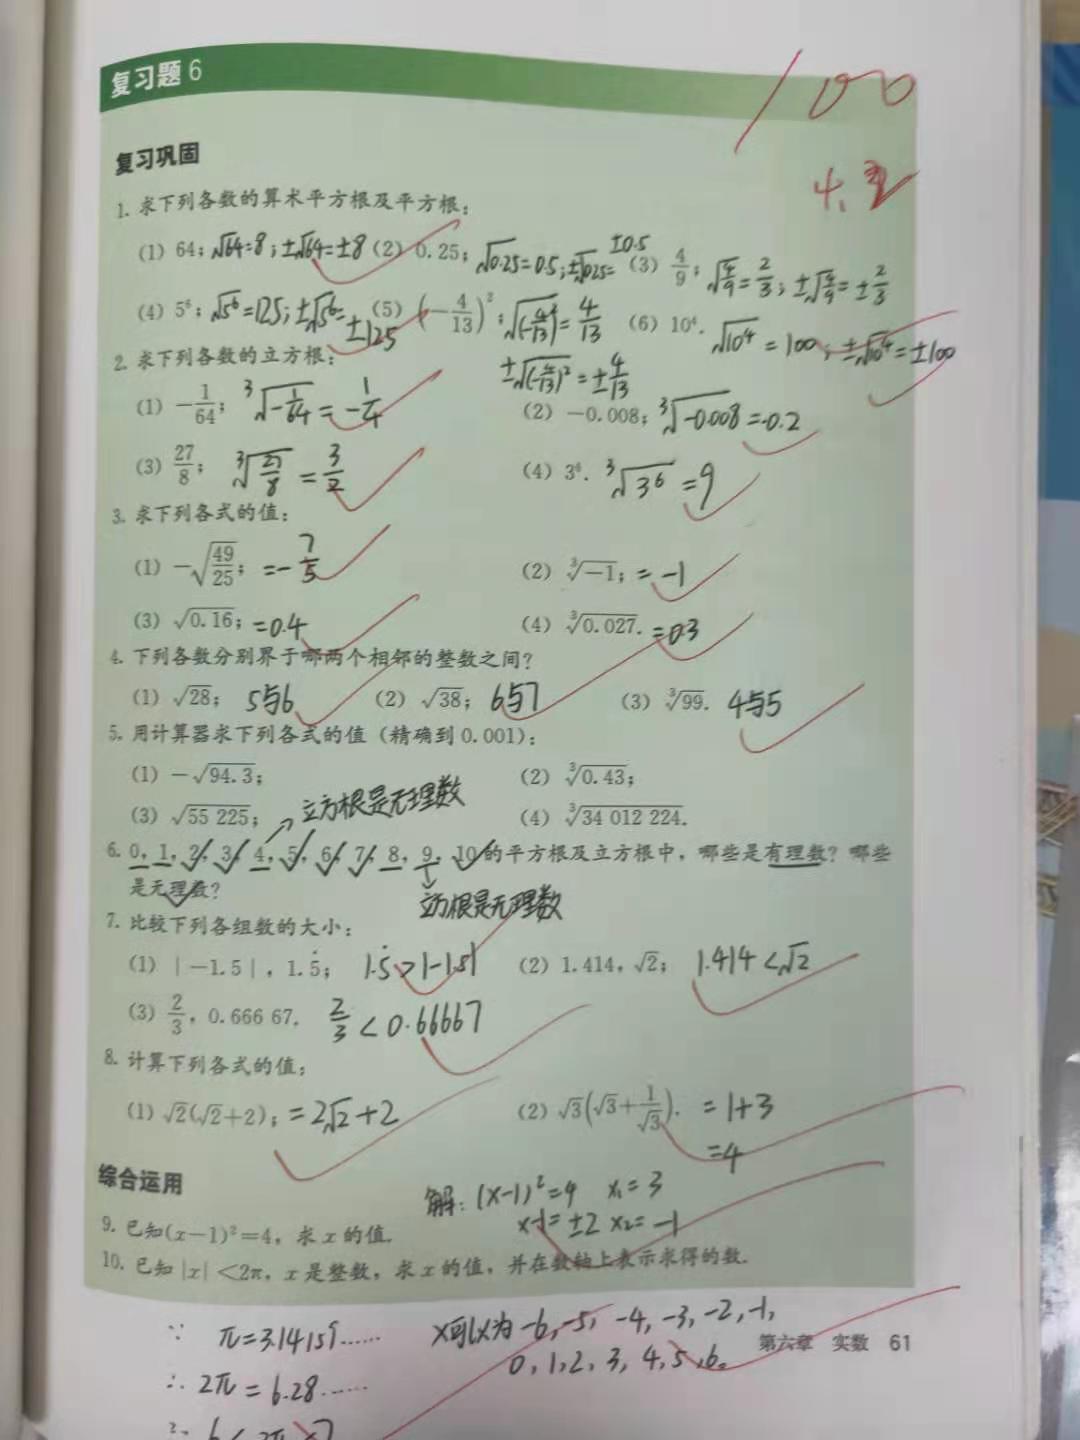 复习题 6
100
4.
复习巩固
1. 求下列各数的算术平方根及平方根:
(1) 64; √64=8;±√64=±8 (2) 0.25; √0.25=0.5;±√0.25=±0.5 (3) 4/9; √(4/9)=2/3;±√(4/9)=±2/3
(4) 5⁶; √5⁶=125;±√5⁶=±125 (5) (-4/13)²; √(-4/13)²=4/13 (6) 10⁴. √10⁴=100;±√10⁴=±100
±√(-4/13)²=±4/13
2. 求下列各数的立方根:
(1) -1/64; ∛(-1/64)=-1/4 (2) -0.008; ∛-0.008=-0.2
(3) 27/8; ∛(27/8)=3/2 (4) 3⁶. ∛3⁶=9
3. 求下列各式的值:
(1) -√(49/25); =-7/5 (2) ∛-1; =-1
(3) √0.16; =0.4 (4) ∛0.027. =0.3
4. 下列各数分别界于哪两个相邻的整数之间?
(1) √28; 5与6 (2) √38; 6与7 (3) ∛99. 4与5
5. 用计算器求下列各式的值 (精确到 0.001):
(1) -√94.3; (2) ∛0.43;
(3) √55 225; (4) ∛34 012 224.
立方根是无理数
6. 0, 1, 2, 3, 4, 5, 6, 7, 8, 9, 10 的平方根及立方根中, 哪些是有理数? 哪些
是无理数?
立方根是无理数
7. 比较下列各组数的大小:
(1) |-1.5|, 1.5̇; 1.5̇>|-1.5| (2) 1.414, √2; 1.414<√2
(3) 2/3, 0.666 67. 2/3<0.66667
8. 计算下列各式的值:
(1) √2(√2+2); =2√2+2 (2) √3(√3+1/√3). =1+3
=4
综合运用
解: (x-1)²=4 x₁=3
x-1=±2 x₂=-1
9. 已知(x-1)²=4, 求 x 的值.
10. 已知 |x|<2π, x 是整数, 求 x 的值, 并在数轴上表示求得的数.
∵ π=3.14159…… x可以为-6,-5,-4,-3,-2,-1,
0,1,2,3,4,5,6.
第六章 实数 61
∴ 2π=6.28……
∴ 6<2π<7